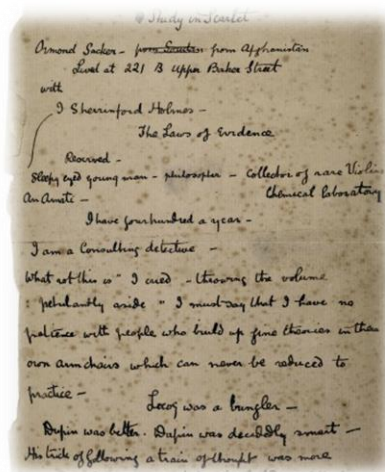 A Study in Scarlet
Ormond Sacker - from Soudan from Afghanistan
Lived at 221 B Upper Baker Street
with
I Sherrinford Holmes -
The Laws of Evidence
Reserved -
Sleepy eyed young man - philosopher - Collector of rare Violins
An Amati - Chemical laboratory
I have four hundred a year -
I am a Consulting detective -
What rot this is" I cried - throwing the volume
: petulantly aside " I must say that I have no
patience with people who build up fine theories in their
own armchairs which can never be reduced to
practice -
Lecoq was a bungler -
Dupin was better. Dupin was decidedly smart -
His trick of following a train of thought was more